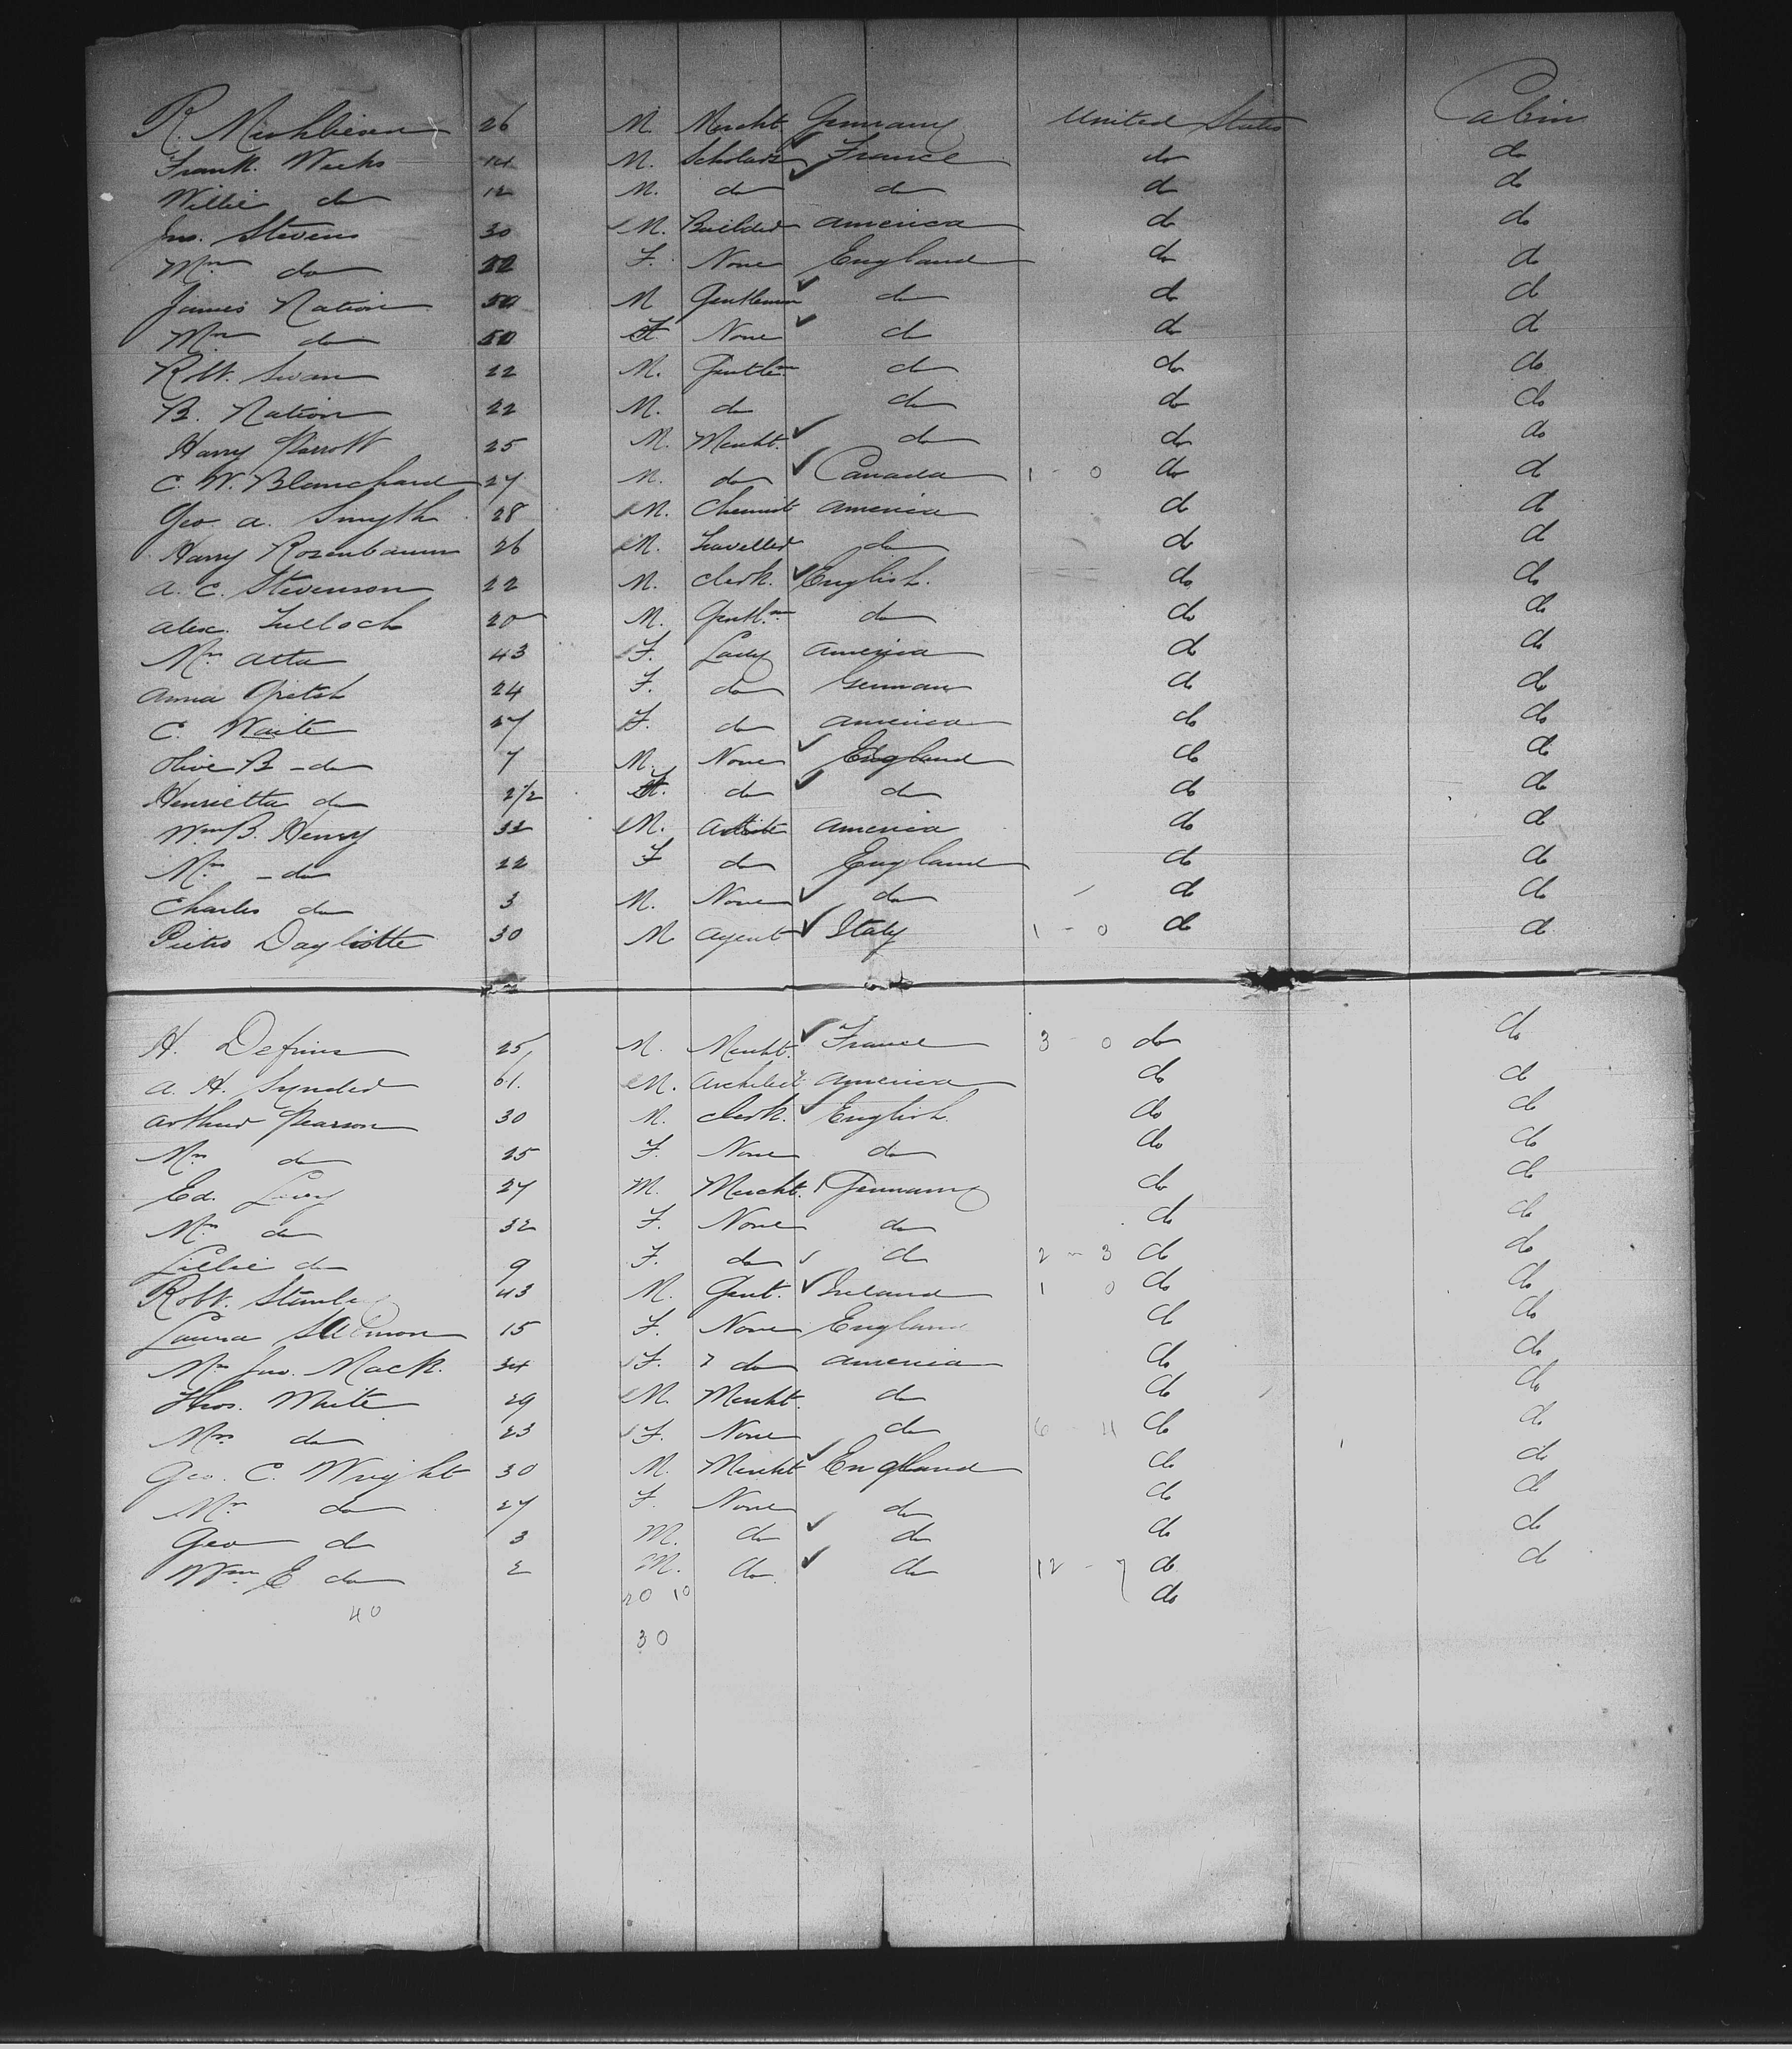 R. 26 M. Mercht Germany United States Cabin
Frank. Weeks 14 M. Scholar France do do
Willie do 12 M. do do do do
Jno. Stevens 30 M. Builder America do do
Mrs do F. None England do do
James Nation M Gentleman do do do
Mrs do F. None do do do
Robt. Swan 22 M. Gentlm do do do
B. Nation 22 M. do do do do
Harry Parrott 25 M. Mercht. do do do
C. W. Blanchard 27 M. do Canada 1 - 0 do do
Geo. A. Smyth 28 M. Chemist America do do
Harry Rosenbaum 26 M. Traveller do do do
A. C. Stevenson 22 M. Clerk. English. do do
Alex. Tulloch 20 M. Gentl.m do do do
Mrs Atta 43 F. Lady America do do
Anna 24 F. do German do do
C. Waite 27 F. do America do do
Olive B - do 7 M. None England do do
Henrietta do 2 1/2 F. do do do do
Wm B. Henry 32 M. Artiste America do do
Mrs - do 22 F do England do do
Charles do 3 M. None do do do
Pietro Dagliotte 30 M Agent Italy 1 - 0 do do
H. 25 M. Mercht. France 3 - 0 do do
A. H. Synder 61. M. Architect America do do
Arthur Pearson 30 M. Clerk. English. do do
Mrs do 25 F. None do do do
Ed. Levy 27 M. Mercht. Germany do do
Mrs do 32 F. None do do do
Lillie do 9 F. do do 2 - 3 do do
Robt. Stanley 43 M. Gent. Ireland 1 0 do do
Laura 15 F. None England do do
Mrs Jno. Mack. 34 F. do America do do
Thos. White 29 M. Mercht. do do do
Mrs do 23 F. None do 6 - 4 do do
Geo. C. Wright 30 M. Mercht England do do
Mrs do 27 F. None do do do
Geo do 3 M. do do do do
Wm E do 2 M. do. do 12 - 7 do do
40 20 10 do
30